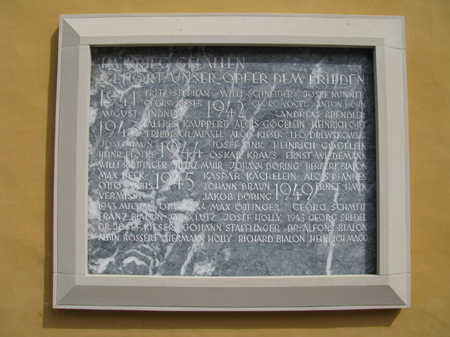 IM KRIEG GEFALLEN
GEHÖRT UNSER OPFER DEM FRIEDEN
1941 FRITZ STEPHAN WILLI SCHNEIDER JOSEF NUNNER
GEORG KIESER 1942 GEORG VOGEL ANTON
AUGUST LINDNER ANDREAS GRENDLER
1943 VALERIE KAUPPERT ALOIS GÖGELEIN HEINRICH ORT
FRIEDR. ALOIS KIESER LEO
JOSEF HAUN 1944 JOSEF LINK HEINRICH GÖGELEIN
HEINRICH OSKAR KRAUS ERNST WIEDEMANN
WILLI HEINZ MUHR JOHANN DÖRING HERBERT BIALON
MAX 1945 KASPAR KÄCHELEIN ALOIS
OTTO JOHANN BRAUN 1949 ERNST HAUN
VERMISST JAKOB DÖRING
1943 MICHAEL 1944 MAX ÖTTINGER GEORG SCHMITH
FRANZ BIALON OTTO LUTZ JOSEF HOLLY 1945 GEORG
DR. JOSEF KIESER JOHANN STAFFLINGER DR. ALFONS BIALON
ALBIN ROSSERT HERMANN HOLLY RICHARD BIALON HEINRICH MAGG